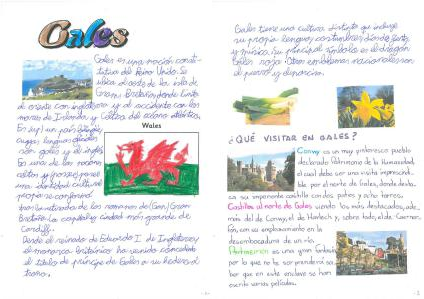 Gales
Gales es una nación consti-
tutiva del Reino Unido. Se
ubica al oeste de la isla de
Gran Bretaña, donde limita
al oriente con Inglaterra y al occidente con los
mares de Irlanda y Celta del océano Atlántico.
En sí, un país bilingüe,
cuyas lenguas oficiales
son galés y el inglés.
Es una de las naciones
celtas y posee
una identidad cultural
propia
tras la retirada de los romanos de Gran
Bretaña. La capital y ciudad más grande es
Cardiff.
Desde el reinado de Eduardo I de Inglaterra,
el monarca británico ha venido concediendo
el título de príncipe de Gales a su heredero
Wales
Gales tiene una cultura distinta que incluye
su propia lengua, costumbres,
y música. Su principal símbolo es el dragón
Gales rojo. Otros emblemas nacionales son
el puerro y el narciso.
¿QUÉ VISITAR EN GALES?
Conwy es un muy pintoresco pueblo
declarado Patrimonio de la Humanidad,
el cual debe ser una visita imprescindi-
ble por el norte de Gales, donde desta-
ca su imponente castillo
Castillos al norte de Gales siendo los más destacados, ade-
más del de Conwy, el de Harlech y, sobre todo, el de Caernar-
fon, con su emplazamiento en la
desembocadura de un río.
Portmeirion es una gran fantasía
por lo que no te sorprenderá sa-
ber que en este enclave se han